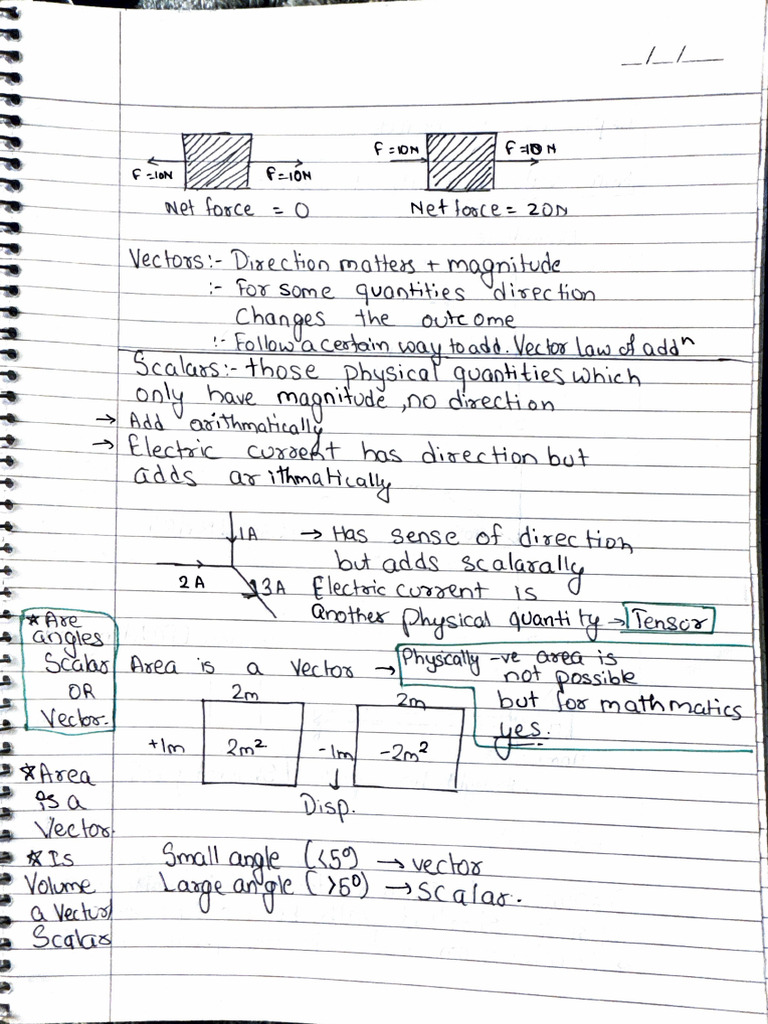 _/_/__
F=10N F=10N
F=10N F=10N
Net force = 0 Net force = 20N
Vectors:- Direction matters + magnitude
:- For some quantities direction
Changes the outcome
:- Follow a certain way to add. Vector law of addⁿ
Scalars:- those physical quantities which
only have magnitude, no direction
→ Add arithmatically
→ Electric current has direction but
adds arithmatically
1A → Has sense of direction
but adds scalarally
2A 3A Electric current is
another physical quantity → Tensor
* Are
angles
Scalar
OR
Vector.
Area is a vector → Physically -ve area is
not possible
but for mathmatics
yes.
2m 2m
+1m 2m² -1m -2m²
Disp.
* Area
is a
Vector.
* Is
Volume
a Vector
Scalar
Small angle (<5°) → vector
Large angle (>5°) → Scalar.